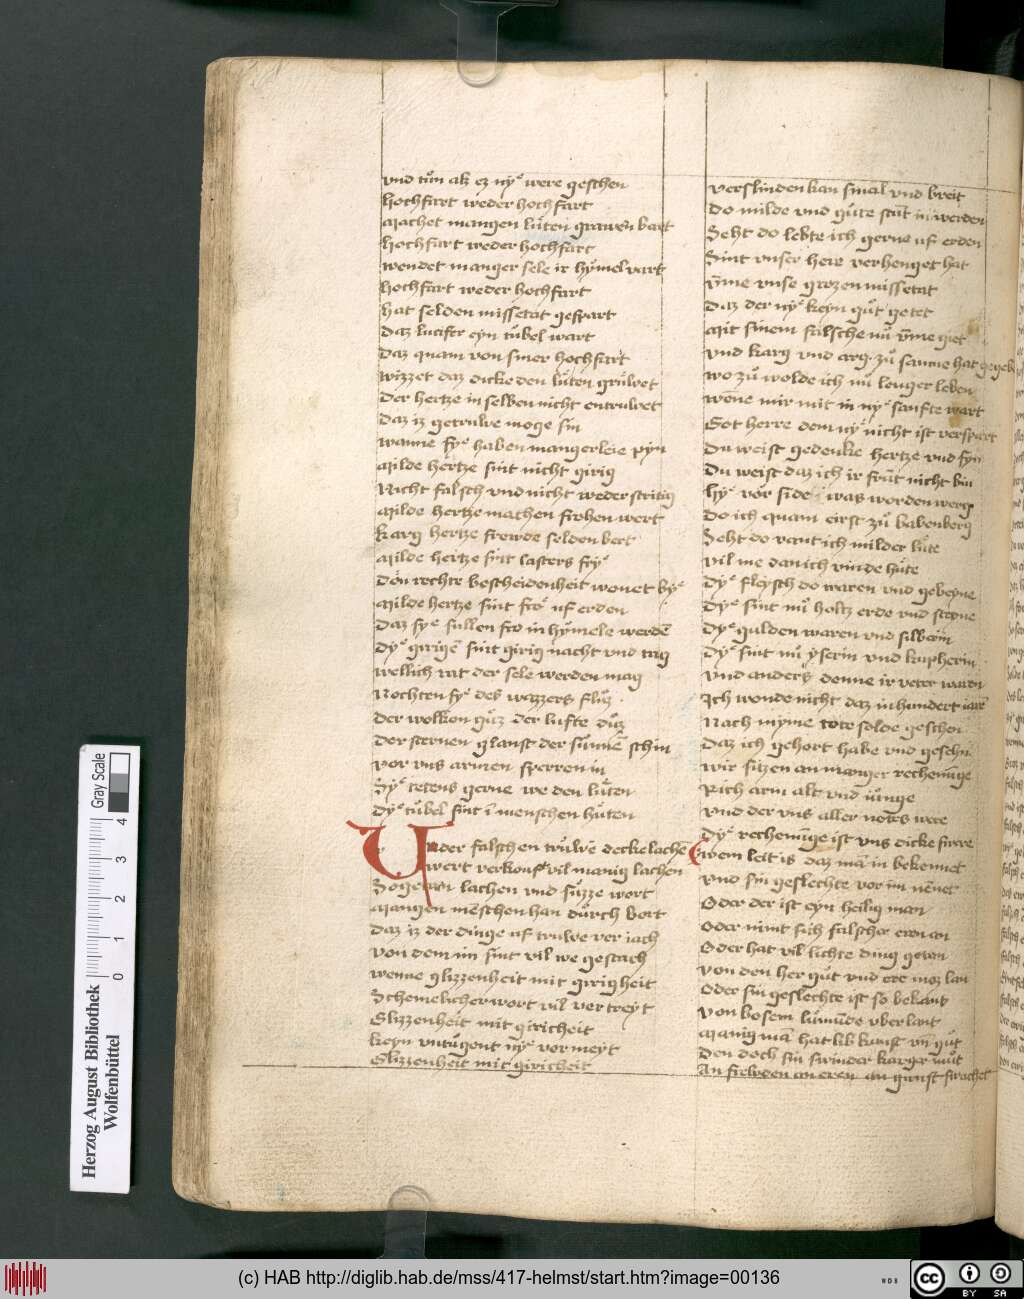 vnd tuͦn alz ez nyͤ were geschen
hochfart weder hochfart
Machet mangen luͤten grawen bart
hochfart weder hochfart
wendet manger sele ir hymel vart
hochfart weder hochfart
hat selden missetat gespart
Daz lucifer eyn tuͤbel wart
Daz quam von siner hochfart
wizzet daz dicke den luͤten gruͤwet
Der hertze in selben nicht entruwet
Daz iz getruwe moge sin
wanne syͤ haben mangerleie pyn
Milde hertze sint nicht girig
Nicht falsch vnd nicht wederstritig
Milde hertze machen frohen wert
Karg hertze frewde selden bert
Milde hertze sint lasters fryͤ
Den rechte bescheidenheit wonet byͤ
Milde hertze sint fro uf erden
Daz syͤ sullen fro in hymele werdē
Dyͤ girigē sint girig nacht vnd tag
wellich rat der sele werden mag
Mochten syͤ des wazzers fluͦz
Der wolken guͦz der lufte duͦz
Der sternen glanst der sunnē schin
vor vns armen sperren in
Syͤ tetens gerne we den luͤten
Dyͤ tuͤbel sint ī menschen huͤten
Under falschen truͦwē decke lache
wert verkouft vil manig lachen
Sogetan lachen vnd suͤzze wort
Mangen mēschen han duͦrch bort
Daz iz der dinge uf truwe ver iach
von dem im sint vil we geschach
wenne glizzenheit mit girigheit
Schemelicher wort vil vertreyt
Glizzenheit mit giricheit
keyn vntuͦgent nyͤ vormeyt
Glizzenheit mit giricheit
verslinden kan smal vnd breit
Do milde vnd guͤte stūt in werden
Seht do lebte ich gerne uf erden
Sint vnser herr verhenget hat
vm̄me vnse grozen missetat
Daz der nyͤ keyn guͦt getet
Mit sinem falsche nuͦ vm̄me get
vnd karg vnd arg zuͦ samne hat geweb
wo zuͦ wolde ich nuͦ lenger leben
wēne mir mit in nyͤ sanfte wart
Got herre dem nyͤ nicht ist verspart
Du weist gedenke hertze vnd syn
Du weist daz ich ir frūt nicht bin
hyͤ vor side was worden werg
Do ich quam eirst zuͦ babenberg
Seht do vant ich milder luͤte
vil me dan ich vinde huͤte
Dyͤ fleysch do waren vnd gebeyne
Dyͤ sint nuͦ holtz erde vnd steyne
Dyͤ gulden waren vnd silberin
Dyͤ sint nuͦ yserin vnd kupherin
vnd anders denne ir veter waren
Ich wonde nicht daz in hundert iarē
Nach myme tote solde geschen
Daz ich gehort habe vnd gesehn
wir sitzen an manger rechenūge
Rich arm alt vnd iuͤnge
vnd der vns aller notes were
Dyͤ rechenūge ist vns dicke swere
wem leit is daz mā in bekennet
vnd sin geslechte vor im nēnet
Oder der ist eyn heilig man
Oder nimt sich falscher eren an
Oder hat vil lichte ding getan
von den her guͦt vnd ere moz lan
Oder sin geslechte ist so bekant
von bosem lūmūde vber lant
Manig mā hat lib kunst vn̄ guͦt
Den doch sin swinder karger muͦt
An frewden an eren an gunst swachet
Herzog August Bibliothek
Wolfenbüttel
0 1 2 3 4
Gray Scale
(c) HAB http://diglib.hab.de/mss/417-helmst/start.htm?image=00136
WDB
cc BY SA